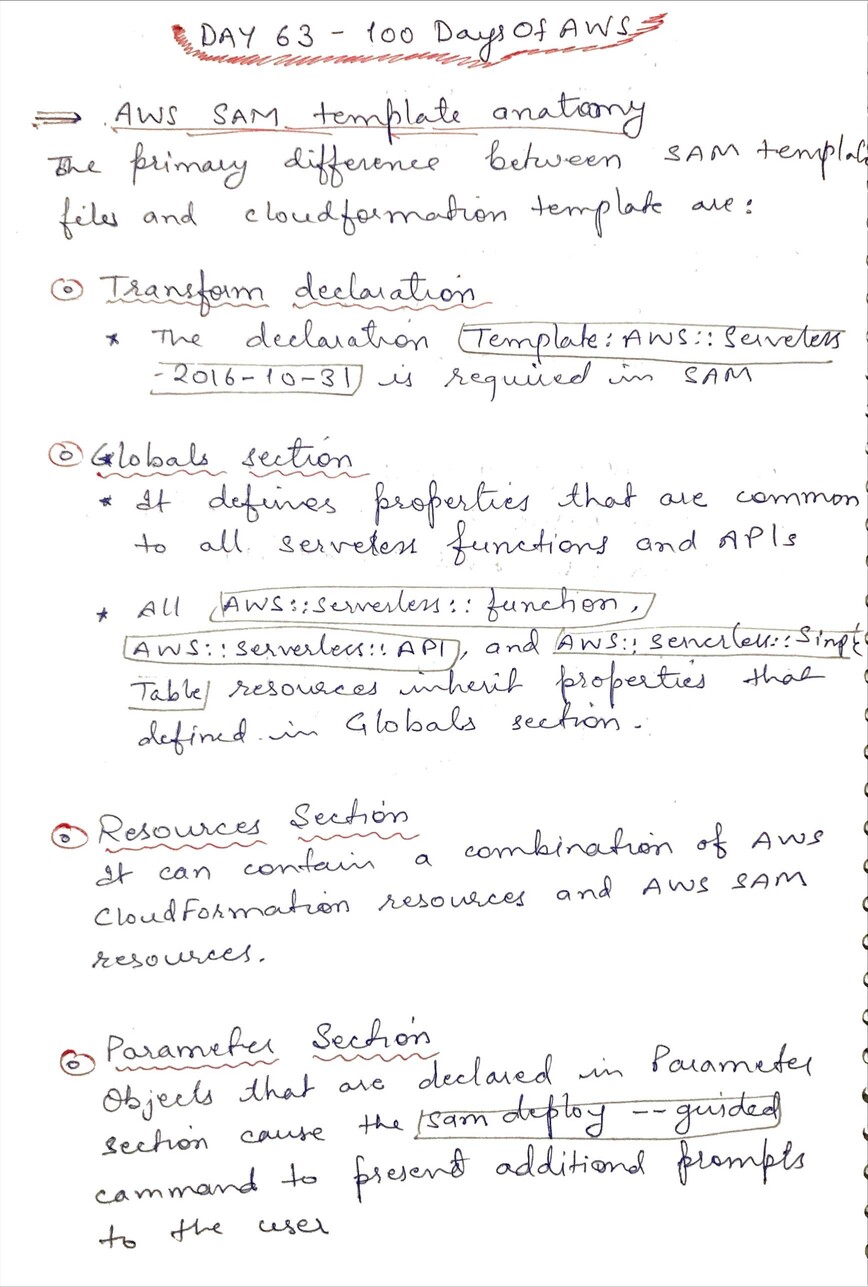 DAY 63 - 100 Days Of AWS
⇒ AWS SAM template anatomy
The primary difference between SAM templat
files and cloudformation template are:
⊙ Transform declaration
* The declaration Template: AWS:: Serveless
-2016-10-31 is required in SAM
⊙ Globals section
* It defines properties that are common
to all serveless functions and APIs
* All AWS::Serverless:: function,
AWS:: Serverless:: API, and AWS:: Serverless:: Simpl
Table resources inherit properties that
defined in Globals section.
⊙ Resources Section
It can contain a combination of AWS
CloudFormation resources and AWS SAM
resources.
⊙ Parameter Section
Objects that are declared in Parameter
section cause the sam deploy --guided
cammand to present additional prompts
to the user